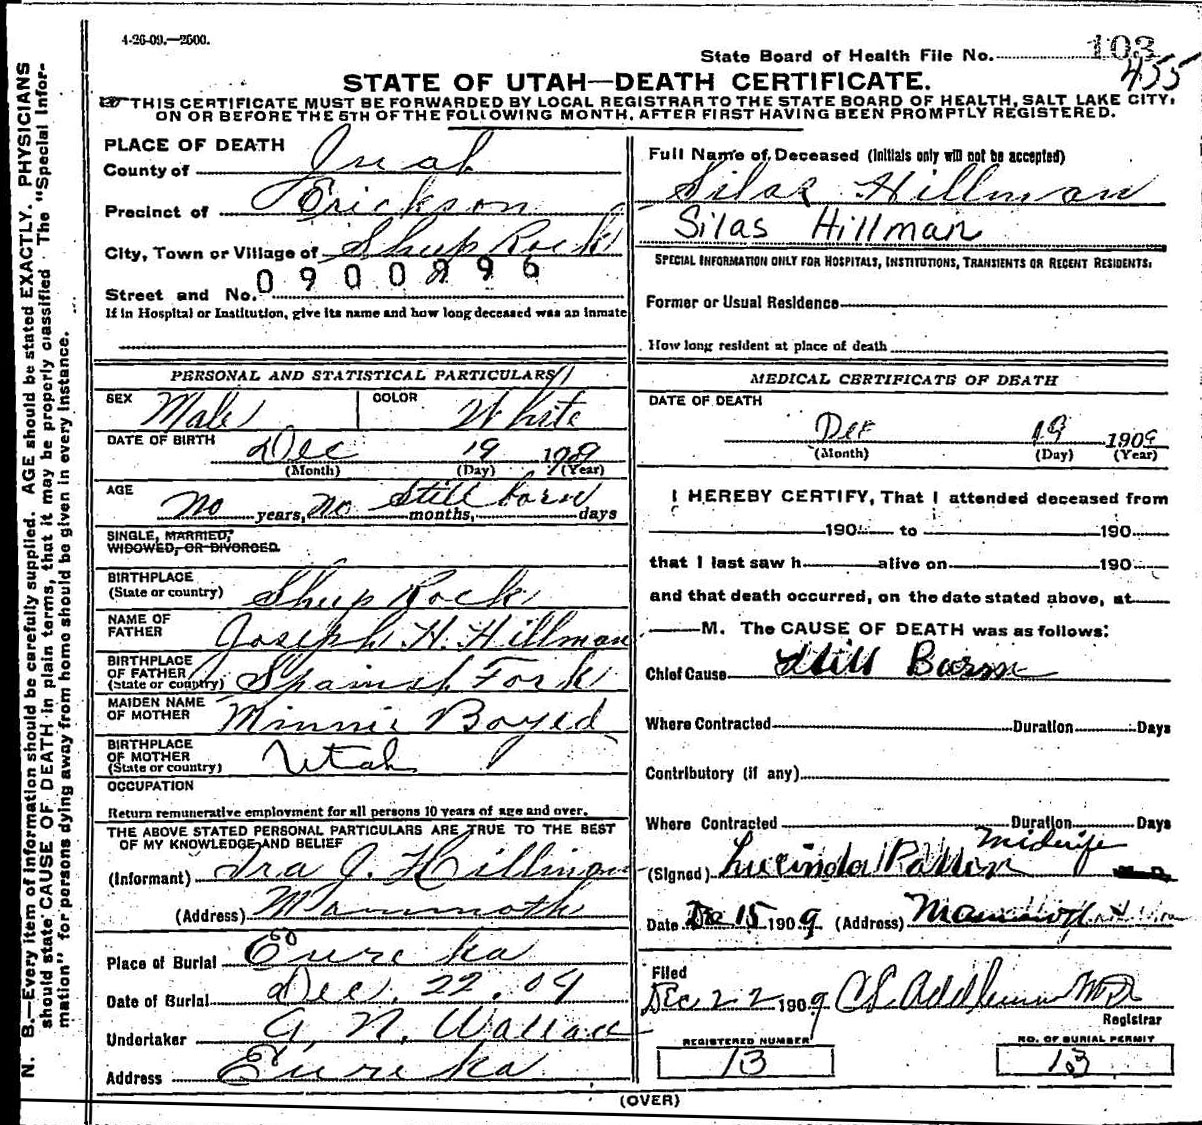 4-26-09.—2500.
State Board of Health File No. 103
455
STATE OF UTAH—DEATH CERTIFICATE.
THIS CERTIFICATE MUST BE FORWARDED BY LOCAL REGISTRAR TO THE STATE BOARD OF HEALTH, SALT LAKE CITY,
ON OR BEFORE THE 5TH OF THE FOLLOWING MONTH, AFTER FIRST HAVING BEEN PROMPTLY REGISTERED.
N. B.—Every item of information should be carefully supplied. AGE should be stated EXACTLY. PHYSICIANS
should state CAUSE OF DEATH in plain terms, that it may be properly classified. The "Special Infor-
mation" for persons dying away from home should be given in every instance.
PLACE OF DEATH
County of Juab
Precinct of Erickson
City, Town or Village of Sheep Rock
Street and No. 0900896
If in Hospital or Institution, give its name and how long deceased was an inmate
PERSONAL AND STATISTICAL PARTICULARS
SEX Male COLOR White
DATE OF BIRTH Dec 19 1909
(Month) (Day) (Year)
AGE No years, No months, Still born days
SINGLE, MARRIED,
WIDOWED, OR DIVORCED.
BIRTHPLACE
(State or country) Sheep Rock
NAME OF
FATHER Joseph H. Hillman
BIRTHPLACE
OF FATHER
(State or country) Spanish Fork
MAIDEN NAME
OF MOTHER Minnie Boyed
BIRTHPLACE
OF MOTHER
(State or country) Utah
OCCUPATION
Return remunerative employment for all persons 10 years of age and over.
THE ABOVE STATED PERSONAL PARTICULARS ARE TRUE TO THE BEST
OF MY KNOWLEDGE AND BELIEF
(Informant) Ira J. Hillman
(Address) Mammoth
Place of Burial Eureka
Date of Burial Dec. 22. 09
Undertaker G. N. Wallace
Address Eureka
Full Name of Deceased (Initials only will not be accepted)
Silas Hillman
Silas Hillman
SPECIAL INFORMATION ONLY FOR HOSPITALS, INSTITUTIONS, TRANSIENTS OR RECENT RESIDENTS.
Former or Usual Residence
How long resident at place of death
MEDICAL CERTIFICATE OF DEATH
DATE OF DEATH
Dec 19 1909
(Month) (Day) (Year)
I HEREBY CERTIFY, That I attended deceased from
190 to 190
that I last saw h alive on 190
and that death occurred, on the date stated above, at
M. The CAUSE OF DEATH was as follows:
Chief Cause Still Born
Where Contracted Duration Days
Contributory (if any)
Where Contracted Duration Days
Midwife
(Signed) Lucinda M. D.
Date Dec 15 1909 (Address)
Filed
Dec 22 1909
Registrar
REGISTERED NUMBER
13
NO. OF BURIAL PERMIT
13
(OVER)